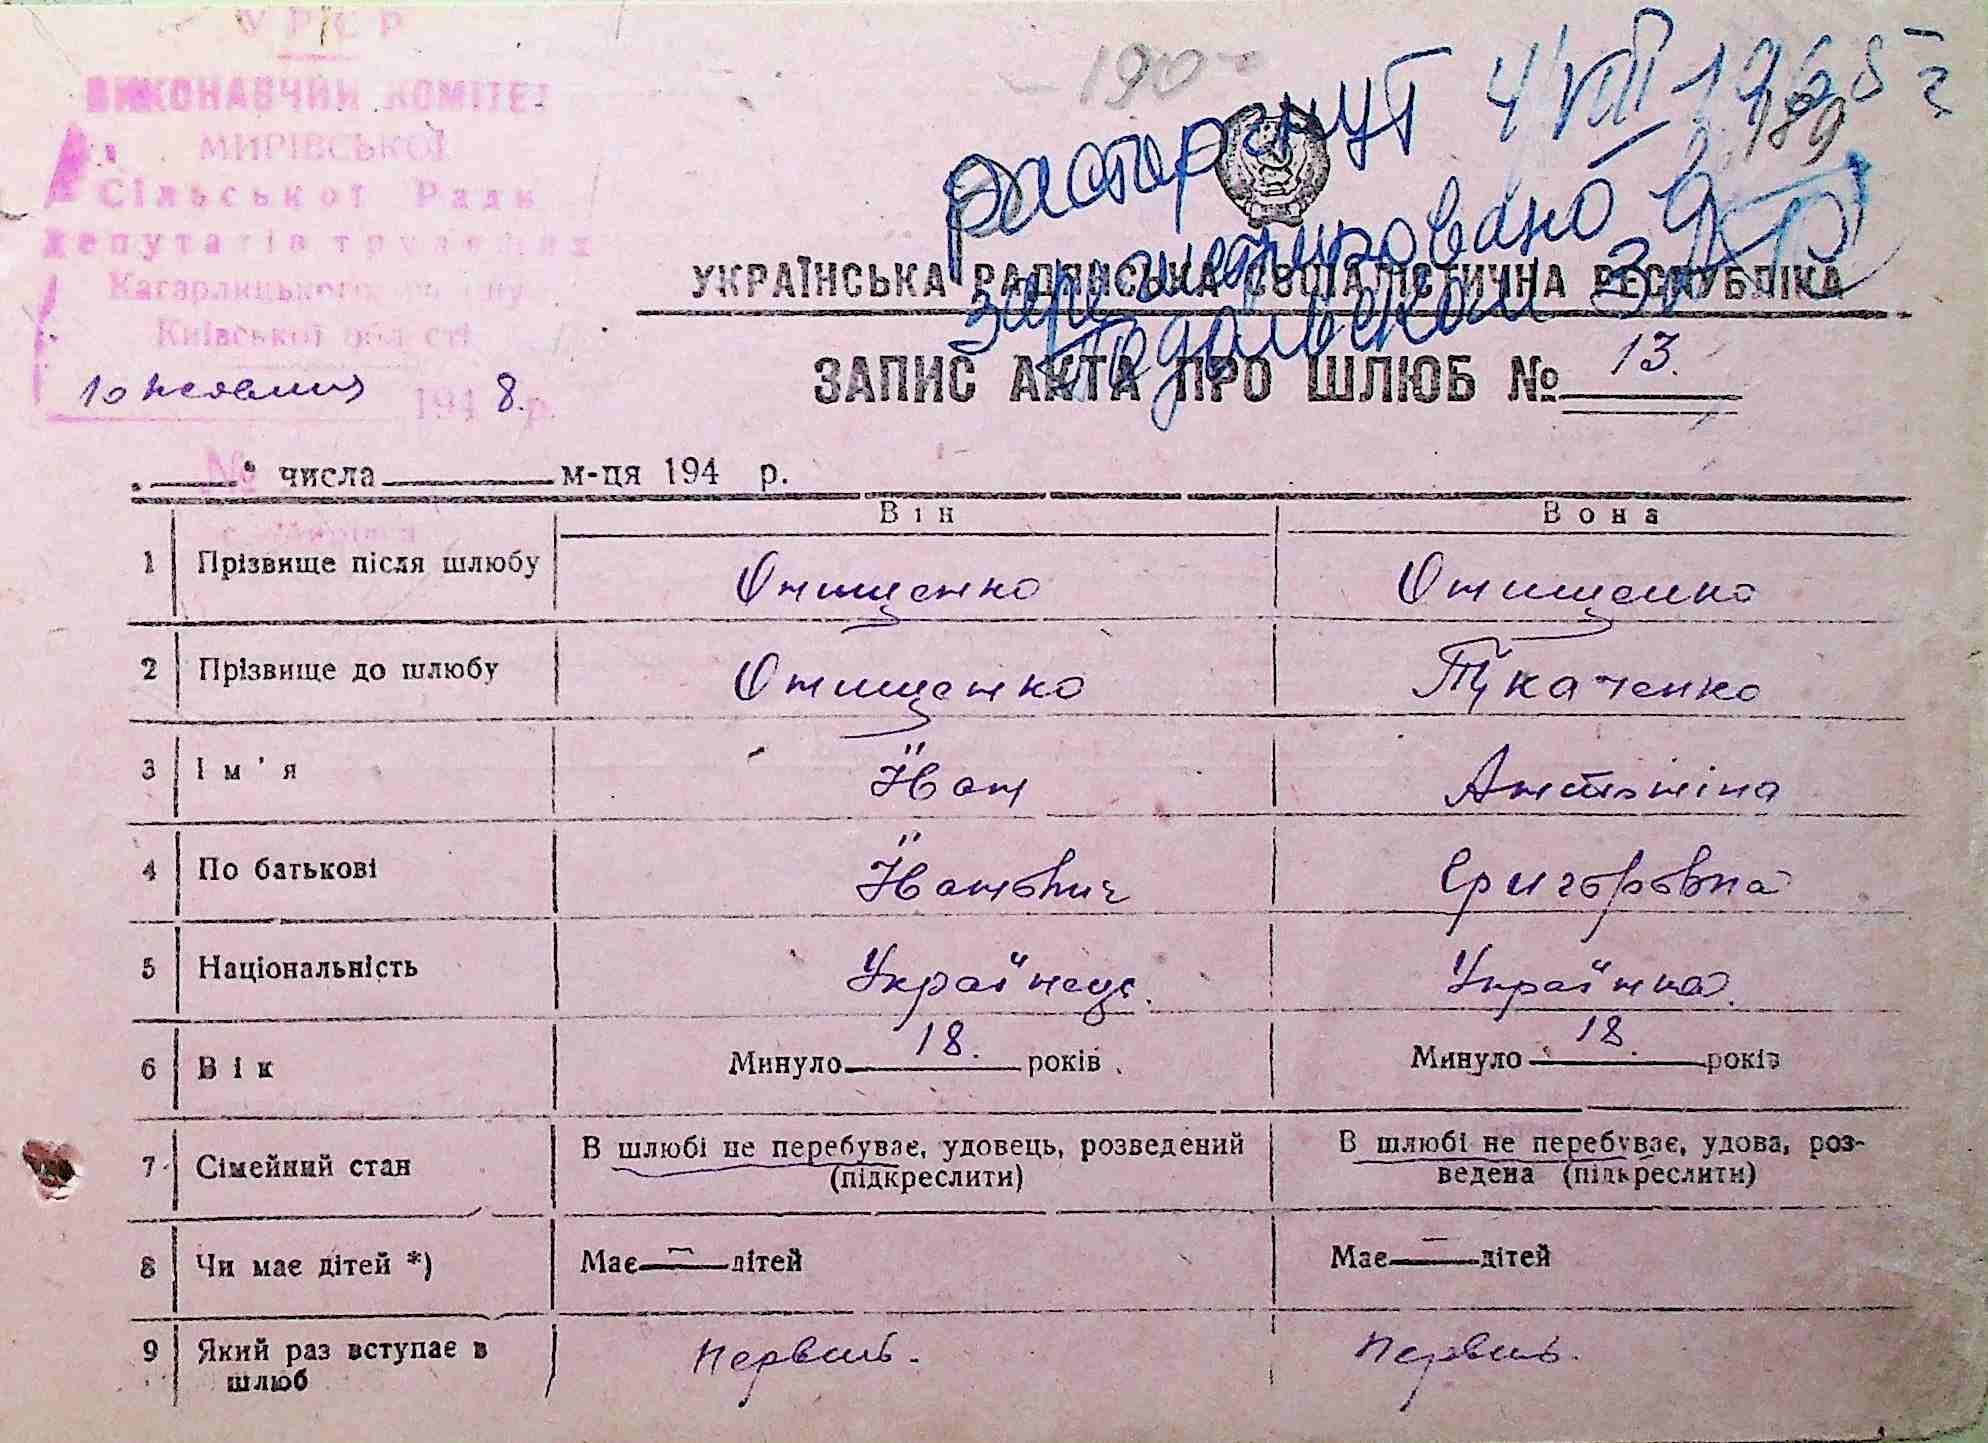 УРСР
ВИКОНАВЧИЙ КОМІТЕТ
МИРІВСЬКОЇ
Сільської Ради
депутатів трудящих
Кагарлицького району
Київської області
10 жовтня 1948 р.
№
с. Мирівка
190
189
расторгнут 4 VIII 1965 г
зарегистровано в
Подольском
УКРАЇНСЬКА РАДЯНСЬКА СОЦІАЛІСТИЧНА РЕСПУБЛІКА
ЗАПИС АКТА ПРО ШЛЮБ № 13.
числа м-ця 194 р.
Він Вона
1 Прізвище після шлюбу Онищенко Онищенко
2 Прізвище до шлюбу Онищенко Ткаченко
3 Ім'я Їван Антоніна
4 По батькові Їванович Григоровна
5 Національність Українець. Українка.
6 Вік Минуло 18. років. Минуло 18. років
7 Сімейний стан В шлюбі не перебуває, удовець, розведений (підкреслити) В шлюбі не перебуває, удова, роз-
ведена (підкреслити)
8 Чи має дітей *) Має — дітей Має — дітей
9 Який раз вступає в Первий. Первий.
шлюб